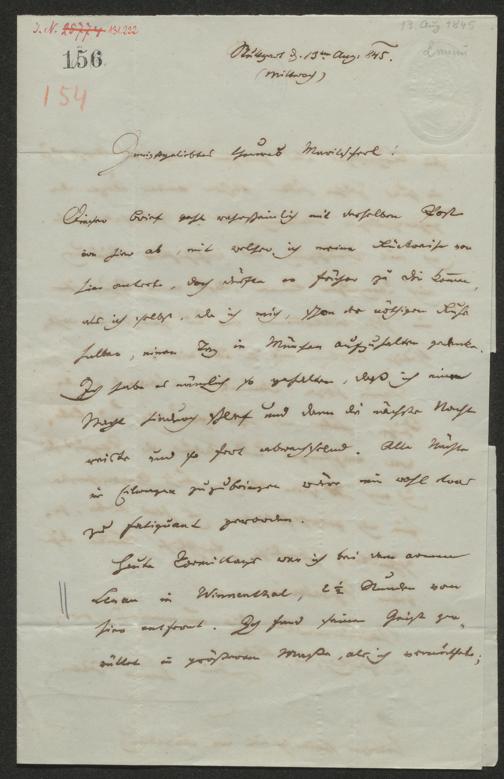 I. N. 25774 131.222
156
154
13. Aug 1845
Lenau
Stuttgart d. 13ten Aug. 845.
(Mittwoch)
Innigstgeliebtes theures Marieherl!
Dieser Brief geht wahrscheinlich mit derselben Post
von hier ab, mit welcher ich meine Rückreise von
hier antrete, doch dürfte er früher zu dir kommen,
als ich selbst, da ich mich, schon der nöthigen Ruhe
halber, einen Tag in München aufzuhalten gedenke.
Ich habe es nämlich so gehalten, daß ich eine
Nacht hindurch schlief und dann die nächste Nacht
reiste und so fort abwechselnd. Alle Nächte
im Eilwagen zuzubringen wäre mir wohl etwas
zu fatiguant geworden.
Heute Vormittags war ich bei dem armen
Lenau in Winnenthal, 2½ Stunden von
hier entfernt. Ich fand seinen Geist zer-
rüttet in größerem Maße, als ich vermuthete;